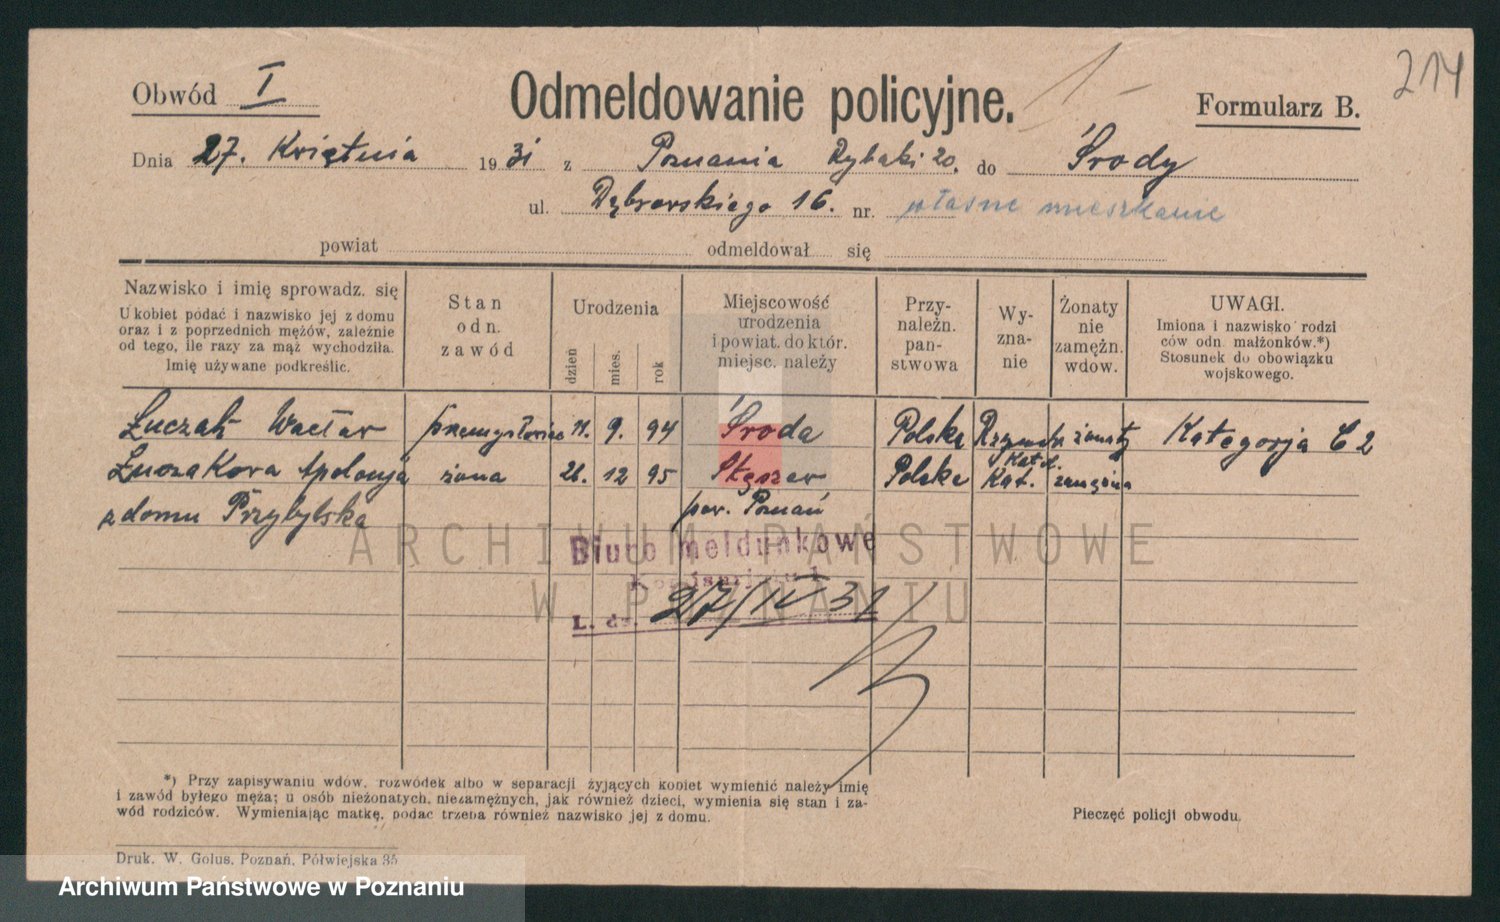 214
Obwód I
Odmeldowanie policyjne.
1-
Formularz B.
Dnia 27. Kwiętnia 1931 z Poznania Rybaki 20. do Środy
ul. Dąbrowskiego 16. nr. własne mieszkanie
powiat odmeldował się
Nazwisko i imię sprowadz. się
U kobiet podać i nazwisko jej z domu
oraz i z poprzednich mężów, zależnie
od tego, ile razy za mąż wychodziła.
Imię używane podkreślic.
Stan
odn.
zawód
Urodzenia
dzień
mies.
rok
Miejscowość
urodzenia
i powiat. do któr.
miejsc. należy
Przy-
należn.
pań-
stwowa
Wy-
zna-
nie
Żonaty
nie
zamężn.
wdow.
UWAGI.
Imiona i nazwisko rodzi
ców odn. małżonków.*)
Stosunek do obowiązku
wojskowego.
Łuczak Wacław przemysłowiec 11. 9. 94 Środa Polska Rzymsko żonaty Kategorja C 2
Kat.
Łuczakowa Apolonja żona 26. 12 95 Stęszew Polska Kat. zamężna
z domu Przybylska pow. Poznań
ARCHIWUM PAŃSTWOWE
W POZNANIU
Biuro meldunkowe
Komisarjatu I
L. dz. 27/IV 31
*) Przy zapisywaniu wdów, rozwódek albo w separacji żyjących kobiet wymienić należy imię
i zawód byłego męża; u osób nieżonatych, niezamężnych, jak również dzieci, wymienia się stan i za-
wód rodziców. Wymieniając matkę, podac trzeba również nazwisko jej z domu.
Pieczęć policji obwodu.
Druk. W. Golus, Poznań, Półwiejska 35
Archiwum Państwowe w Poznaniu